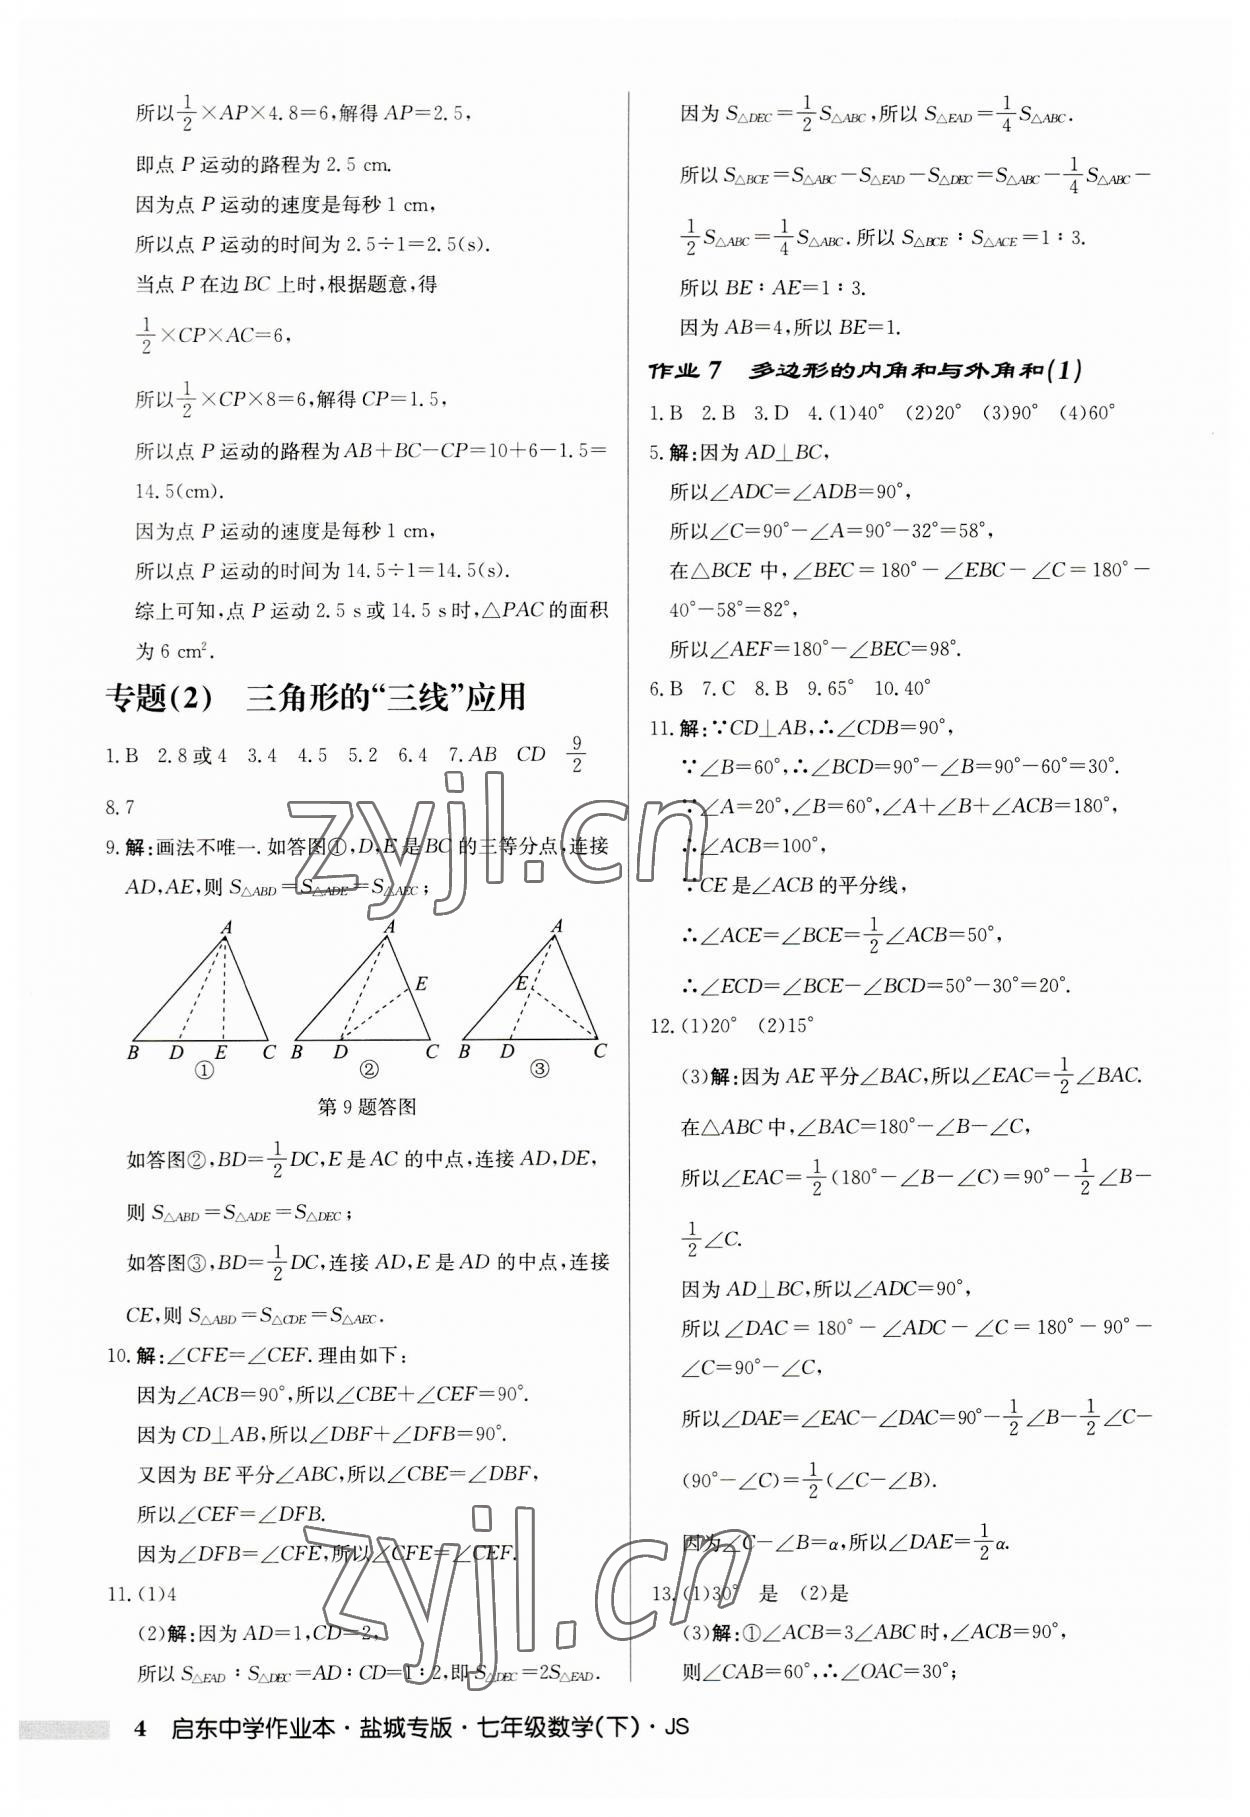 所以1/2×AP×4.8=6,解得 AP=2.5,
即点 P 运动的路程为 2.5 cm.
因为点 P 运动的速度是每秒 1 cm,
所以点 P 运动的时间为 2.5÷1=2.5(s).
当点 P 在边 BC 上时,根据题意,得
1/2×CP×AC=6,
所以1/2×CP×8=6,解得 CP=1.5,
所以点 P 运动的路程为 AB+BC−CP=10+6−1.5=
14.5(cm).
因为点 P 运动的速度是每秒 1 cm,
所以点 P 运动的时间为 14.5÷1=14.5(s).
综上可知,点 P 运动 2.5 s 或 14.5 s 时,△PAC 的面积
为 6 cm².
专题(2) 三角形的“三线”应用
1.B 2.8 或 4 3.4 4.5 5.2 6.4 7.AB CD 9/2
8.7
9.解:画法不唯一.如答图①,D,E 是 BC 的三等分点,连接
AD,AE,则 S△ABD=S△ADE=S△AEC;
A B D E C ①
A E B D C ②
A E B D C ③
第 9 题答图
如答图②,BD=1/2DC,E 是 AC 的中点,连接 AD,DE,
则 S△ABD=S△ADE=S△DEC;
如答图③,BD=1/2DC,连接 AD,E 是 AD 的中点,连接
CE,则 S△ABD=S△CDE=S△AEC.
10.解:∠CFE=∠CEF.理由如下:
因为∠ACB=90°,所以∠CBE+∠CEF=90°.
因为 CD⊥AB,所以∠DBF+∠DFB=90°.
又因为 BE 平分∠ABC,所以∠CBE=∠DBF,
所以∠CEF=∠DFB.
因为∠DFB=∠CFE,所以∠CFE=∠CEF.
11.(1)4
(2)解:因为 AD=1,CD=2,
所以 S△EAD∶S△DEC=AD∶CD=1∶2,即 S△DEC=2S△EAD.
因为 S△DEC=1/2S△ABC,所以 S△EAD=1/4S△ABC.
所以 S△BCE=S△ABC−S△EAD−S△DEC=S△ABC−1/4S△ABC−
1/2S△ABC=1/4S△ABC.所以 S△BCE∶S△ACE=1∶3.
所以 BE∶AE=1∶3.
因为 AB=4,所以 BE=1.
作业 7 多边形的内角和与外角和(1)
1.B 2.B 3.D 4.(1)40° (2)20° (3)90° (4)60°
5.解:因为 AD⊥BC,
所以∠ADC=∠ADB=90°,
所以∠C=90°−∠A=90°−32°=58°,
在△BCE 中,∠BEC=180°−∠EBC−∠C=180°−
40°−58°=82°,
所以∠AEF=180°−∠BEC=98°.
6.B 7.C 8.B 9.65° 10.40°
11.解:∵CD⊥AB,∴∠CDB=90°,
∵∠B=60°,∴∠BCD=90°−∠B=90°−60°=30°.
∵∠A=20°,∠B=60°,∠A+∠B+∠ACB=180°,
∴∠ACB=100°,
∵CE 是∠ACB 的平分线,
∴∠ACE=∠BCE=1/2∠ACB=50°,
∴∠ECD=∠BCE−∠BCD=50°−30°=20°.
12.(1)20° (2)15°
(3)解:因为 AE 平分∠BAC,所以∠EAC=1/2∠BAC.
在△ABC 中,∠BAC=180°−∠B−∠C,
所以∠EAC=1/2(180°−∠B−∠C)=90°−1/2∠B−
1/2∠C.
因为 AD⊥BC,所以∠ADC=90°,
所以∠DAC=180°−∠ADC−∠C=180°−90°−
∠C=90°−∠C,
所以∠DAE=∠EAC−∠DAC=90°−1/2∠B−1/2∠C−
(90°−∠C)=1/2(∠C−∠B).
因为∠C−∠B=α,所以∠DAE=1/2α.
13.(1)30° 是 (2)是
(3)解:①∠ACB=3∠ABC 时,∠ACB=90°,
则∠CAB=60°,∴∠OAC=30°;
zyjl.cn
zyjl.cn
4 启东中学作业本·盐城专版·七年级数学(下)·JS